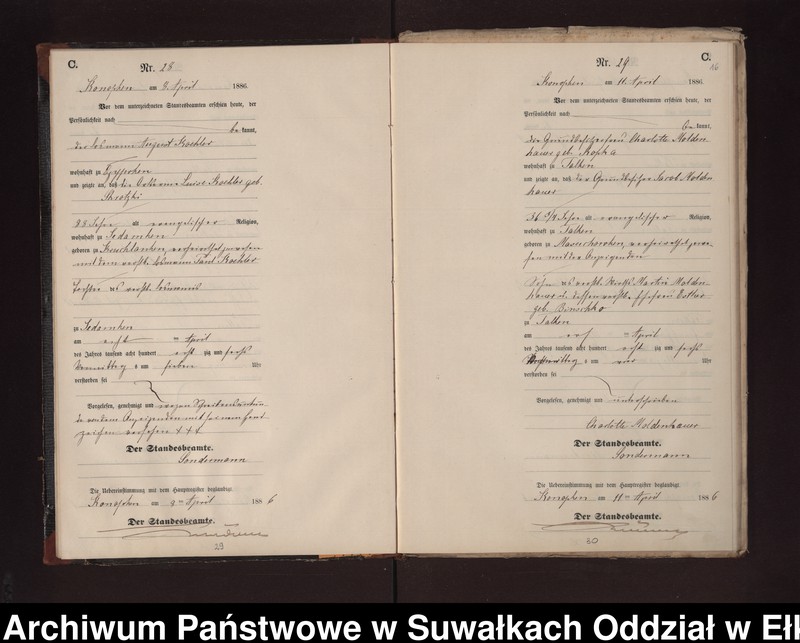 C.
Nr. 28
Konopken am 9. April 1886.
Vor dem unterzeichneten Standesbeamten erschien heute, der
Persönlichkeit nach
be kannt,
der Losmann August Koehler
wohnhaft zu
und zeigte an, daß die Luise Koehler geb.
88 Jahre evangelischer Religion,
wohnhaft zu Sedamken
geboren zu verheirathet gewesen
mit dem verstb. Losmann Koehler
Tochter des verstb.
zu Sedamken
am acht ten April
des Jahres tausend acht hundert acht zig und sechs
Vormittag s um sieben Uhr
verstorben sei
Vorgelesen, genehmigt und wegen
von dem Anzeigenden mit seinem Hand
zeichen versehen + + +
Der Standesbeamte.
Sondermann
Die Uebereinstimmung mit dem Hauptregister beglaubigt
Konopken am 9 ten April 188 6
Der Standesbeamte.
29
C.
16
Nr. 29
Konopken am 11. April 1886.
Vor dem unterzeichneten Standesbeamten erschien heute, der
Persönlichkeit nach
be kannt,
die Grundbesitzerfrau Charlotte Molden
hauer geb. Kopka
wohnhaft zu Talken
und zeigte an, daß der Grundbesitzer Jacob Molden
hauer
56 Jahre evangelischer Religion,
wohnhaft zu Talken
geboren zu verheirathet gewe
sen mit der Anzeigenden
Sohn des verstb. Wirths Martin Molden
hauer u. dessen verstb. Ehefrau
geb.
zu Talken
am elf ten April
des Jahres tausend acht hundert acht zig und sechs
mittag s um vier Uhr
verstorben sei
Vorgelesen, genehmigt und unterschrieben
Charlotte Moldenhauer
Der Standesbeamte.
Sondermann
Die Uebereinstimmung mit dem Hauptregister beglaubigt
Konopken am 11 ten April 188 6
Der Standesbeamte.
30
Archiwum Państwowe w Suwałkach Oddział w Eł